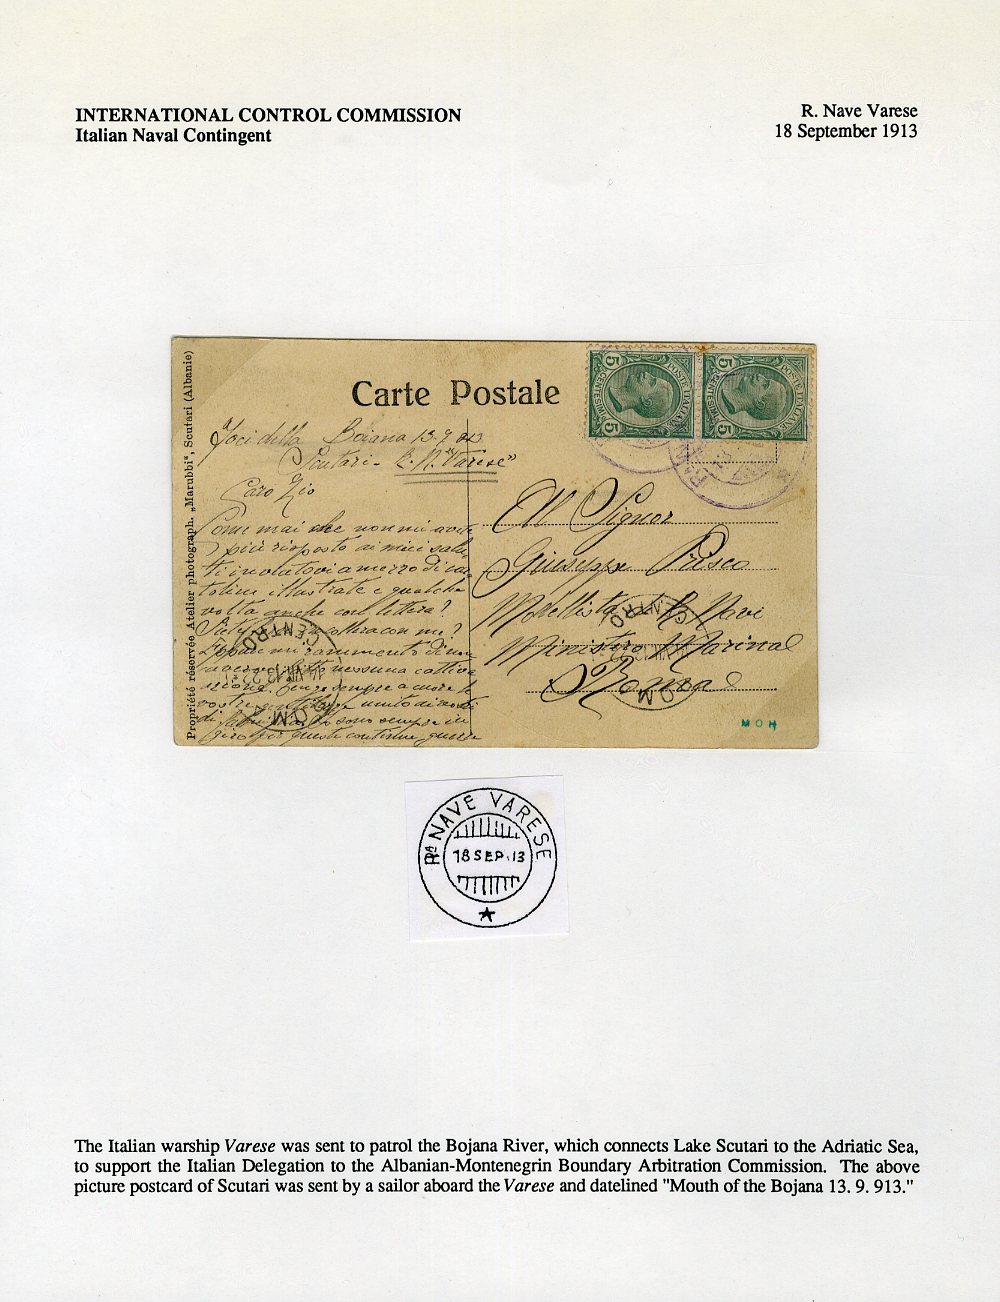 INTERNATIONAL CONTROL COMMISSION
Italian Naval Contingent
R. Nave Varese
18 September 1913
Propriété réservée Atelier photograph. „Marubbi", Scutari (Albanie)
Carte Postale
5 CENTESIMI POSTE ITALIANE
5 CENTESIMI POSTE ITALIANE
Foci della Boiana 13.9.913
Scutari - R.N. "Varese"
Caro Zio
Come mai che non mi avete
più risposto ai miei salu-
ti inviatovi a mezzo di car-
toline illustrate e qualche
volta anche con lettera?
Siete in collera con me?
nessuna cattiva
sempre
di sono sempre in
giro per queste continue guerre
Al Signor
Giuseppe Prisco
Modellista R. Navi
Ministero Marina
Roma
ROMA CENTRO
ROMA CENTRO
MOH
Ra NAVE VARESE
18 SEP. 13
The Italian warship Varese was sent to patrol the Bojana River, which connects Lake Scutari to the Adriatic Sea,
to support the Italian Delegation to the Albanian-Montenegrin Boundary Arbitration Commission. The above
picture postcard of Scutari was sent by a sailor aboard the Varese and datelined "Mouth of the Bojana 13. 9. 913."